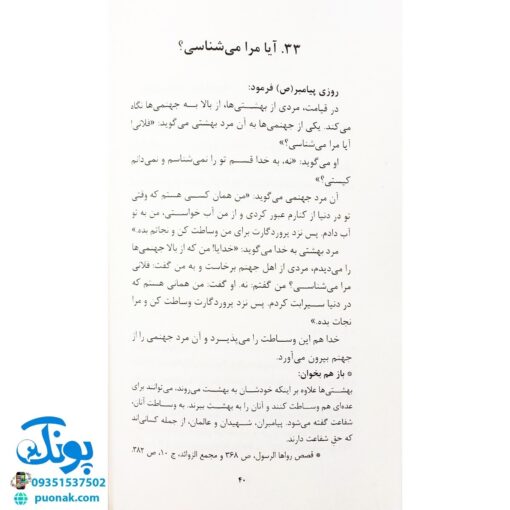 ۳۳. آیا مرا می‌شناسی؟
روزی پیامبر(ص) فرمود:
در قیامت، مردی از بهشتی‌ها، از بالا به جهنمی‌ها نگاه
می‌کند. یکی از جهنمی‌ها به آن مرد بهشتی می‌گوید: «فلانی!
آیا مرا می‌شناسی؟»
او می‌گوید: «نه، به خدا قسم تو را نمی‌شناسم و نمی‌دانم
کیستی؟»
آن مرد جهنمی می‌گوید: «من همان کسی هستم که وقتی
تو در دنیا از کنارم عبور کردی و از من آب خواستی، من به تو
آب دادم. پس نزد پروردگارت برای من وساطت کن و نجاتم بده.»
مرد بهشتی به خدا می‌گوید: «خدایا! من که از بالا جهنمی‌ها
را می‌دیدم، مردی از اهل جهنم برخاست و به من گفت: فلانی
مرا می‌شناسی؟ من گفتم: نه. او گفت: من همانی هستم که
در دنیا سیرابت کردم. پس نزد پروردگارت وساطت کن و مرا
نجات بده.»
خدا هم این وساطت را می‌پذیرد و آن مرد جهنمی را از
جهنم بیرون می‌آورد.
* باز هم بخوان:
بهشتی‌ها علاوه بر اینکه خودشان به بهشت می‌روند، می‌توانند برای
عده‌ای هم وساطت کنند و آنان را به بهشت ببرند. به وساطت آنان،
شفاعت گفته می‌شود. پیامبران، شهیدان و عالمان، از جمله کسانی‌اند
که حق شفاعت دارند.
* قصص رواها الرسول، ص ۳۶۸ و مجمع الزوائد، ج ۱۰، ص ۳۸۲.
۴۰
پونک
09351537502
puonak.com